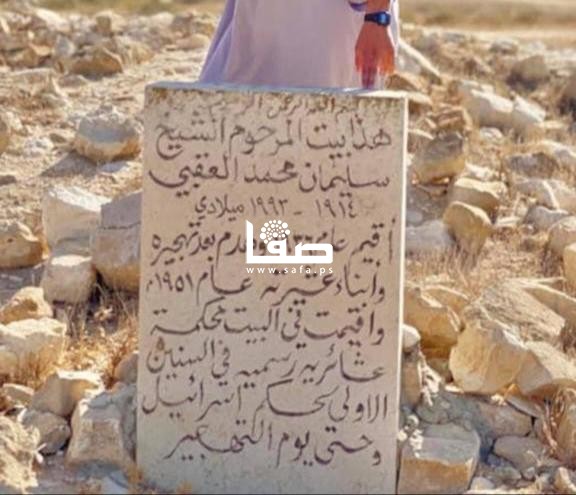 بسم الله الرحمن الرحيم
هذا بيت المرحوم الشيخ
سليمان محمد العقبي
١٩١٤ - ١٩٩٣ ميلادي
أقيم عام وهدم بعد تهجيره
وابناء عشيرته عام ١٩٥١م
واقيمت في البيت محكمة
عشائريه رسميه في السنين
الاولى لحكم اسرائيل
وحتى يوم التهجير
صفا
www.safa.ps